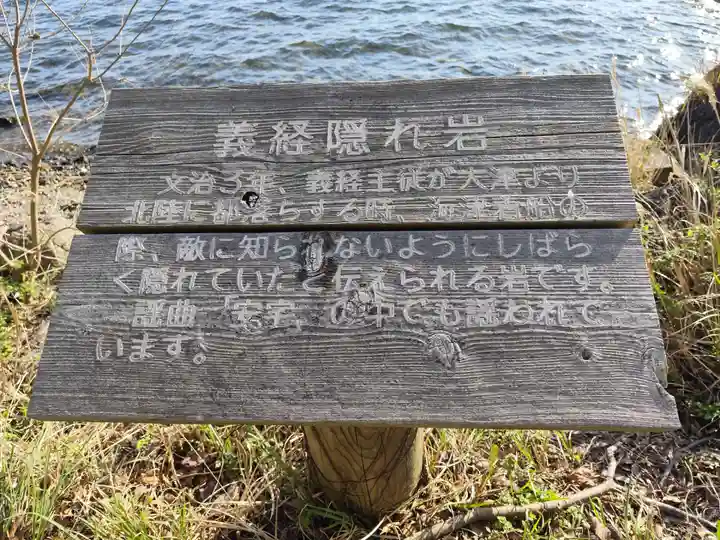 義経隠れ岩
文治3年、義経主従が大津より
北陸に部落らする時、海津着船の
際、敵に知られないようにしばら
く隠れていたと伝えられる岩です。
謡曲「安宅」の中でも謡われて
います。